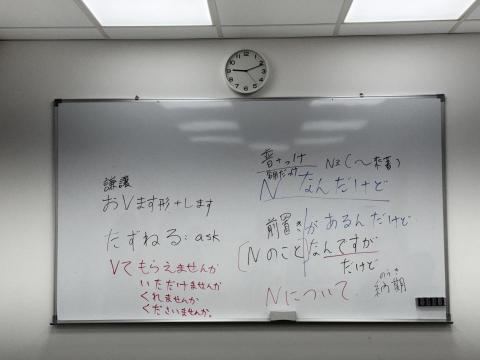 謙譲
おVます形+します
たずねる:ask
Vてもらえませんか
いただけませんか
くれませんか
くださいませんか。
N なんだけど
前置き
があるんだけど
Nのこと
なんですが
だけど
Nについて
のうき
納期